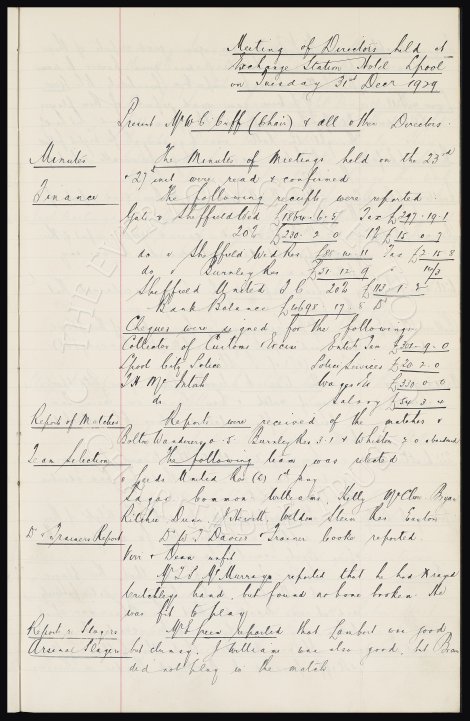 Meeting of Directors held at
Exchange Station Hotel Lpool
on Tuesday 31st Decr 1929
Present Mr W. C. Cuff (Chair) & all other Directors.
Minutes The Minutes of Meetings held on the 23rd
& 27 inst were read & confirmed
Finance The following receipts were reported
Gate v Sheffield Wed £1864. 6. 8 Tax £297. 19. 1
20% £230. 2. 0 £15. 0. 7
do v Sheffield Wed Res Tax £7. 15. 8
do v Burnley Res £31. 12. 9
Sheffield United F C 20% £113. 1. 5
Bank Balance £4698. 17. 8 Dr
Cheques were signed for the following
Collector of Customs & Excise Entert Tax £301. 9. 0
Lpool City Police Police Services £20. 2. 0
T. H. McIntosh Wages &c £350. 0. 0
do Salary £54. 3. 4
Reports of Matches Reports were received of the matches v
Bolton Wanderers 0. 5 Burnley Res 3. 1 & Whiston 2. 0 abandoned
Team Selection The following team was selected
v Leeds United Res (C) 1st Jany
Sagar Common Williams, Kelly McClure Bryan
Ritchie, Dunn, Hewitt, Weldon Stein Res Easton
Dr & Trainers Report Dr Davies & Trainer Cooke reported
Kerr & Dean unfit
Mr T. S. McMurray reported that he had xrayed
Critchleys hand, but found no bone broken. He
was fit to play
Report re Players Mr Green reported that Lambert was good
Arsenal Players but clumsy, J William was also good, but
did not play in the match